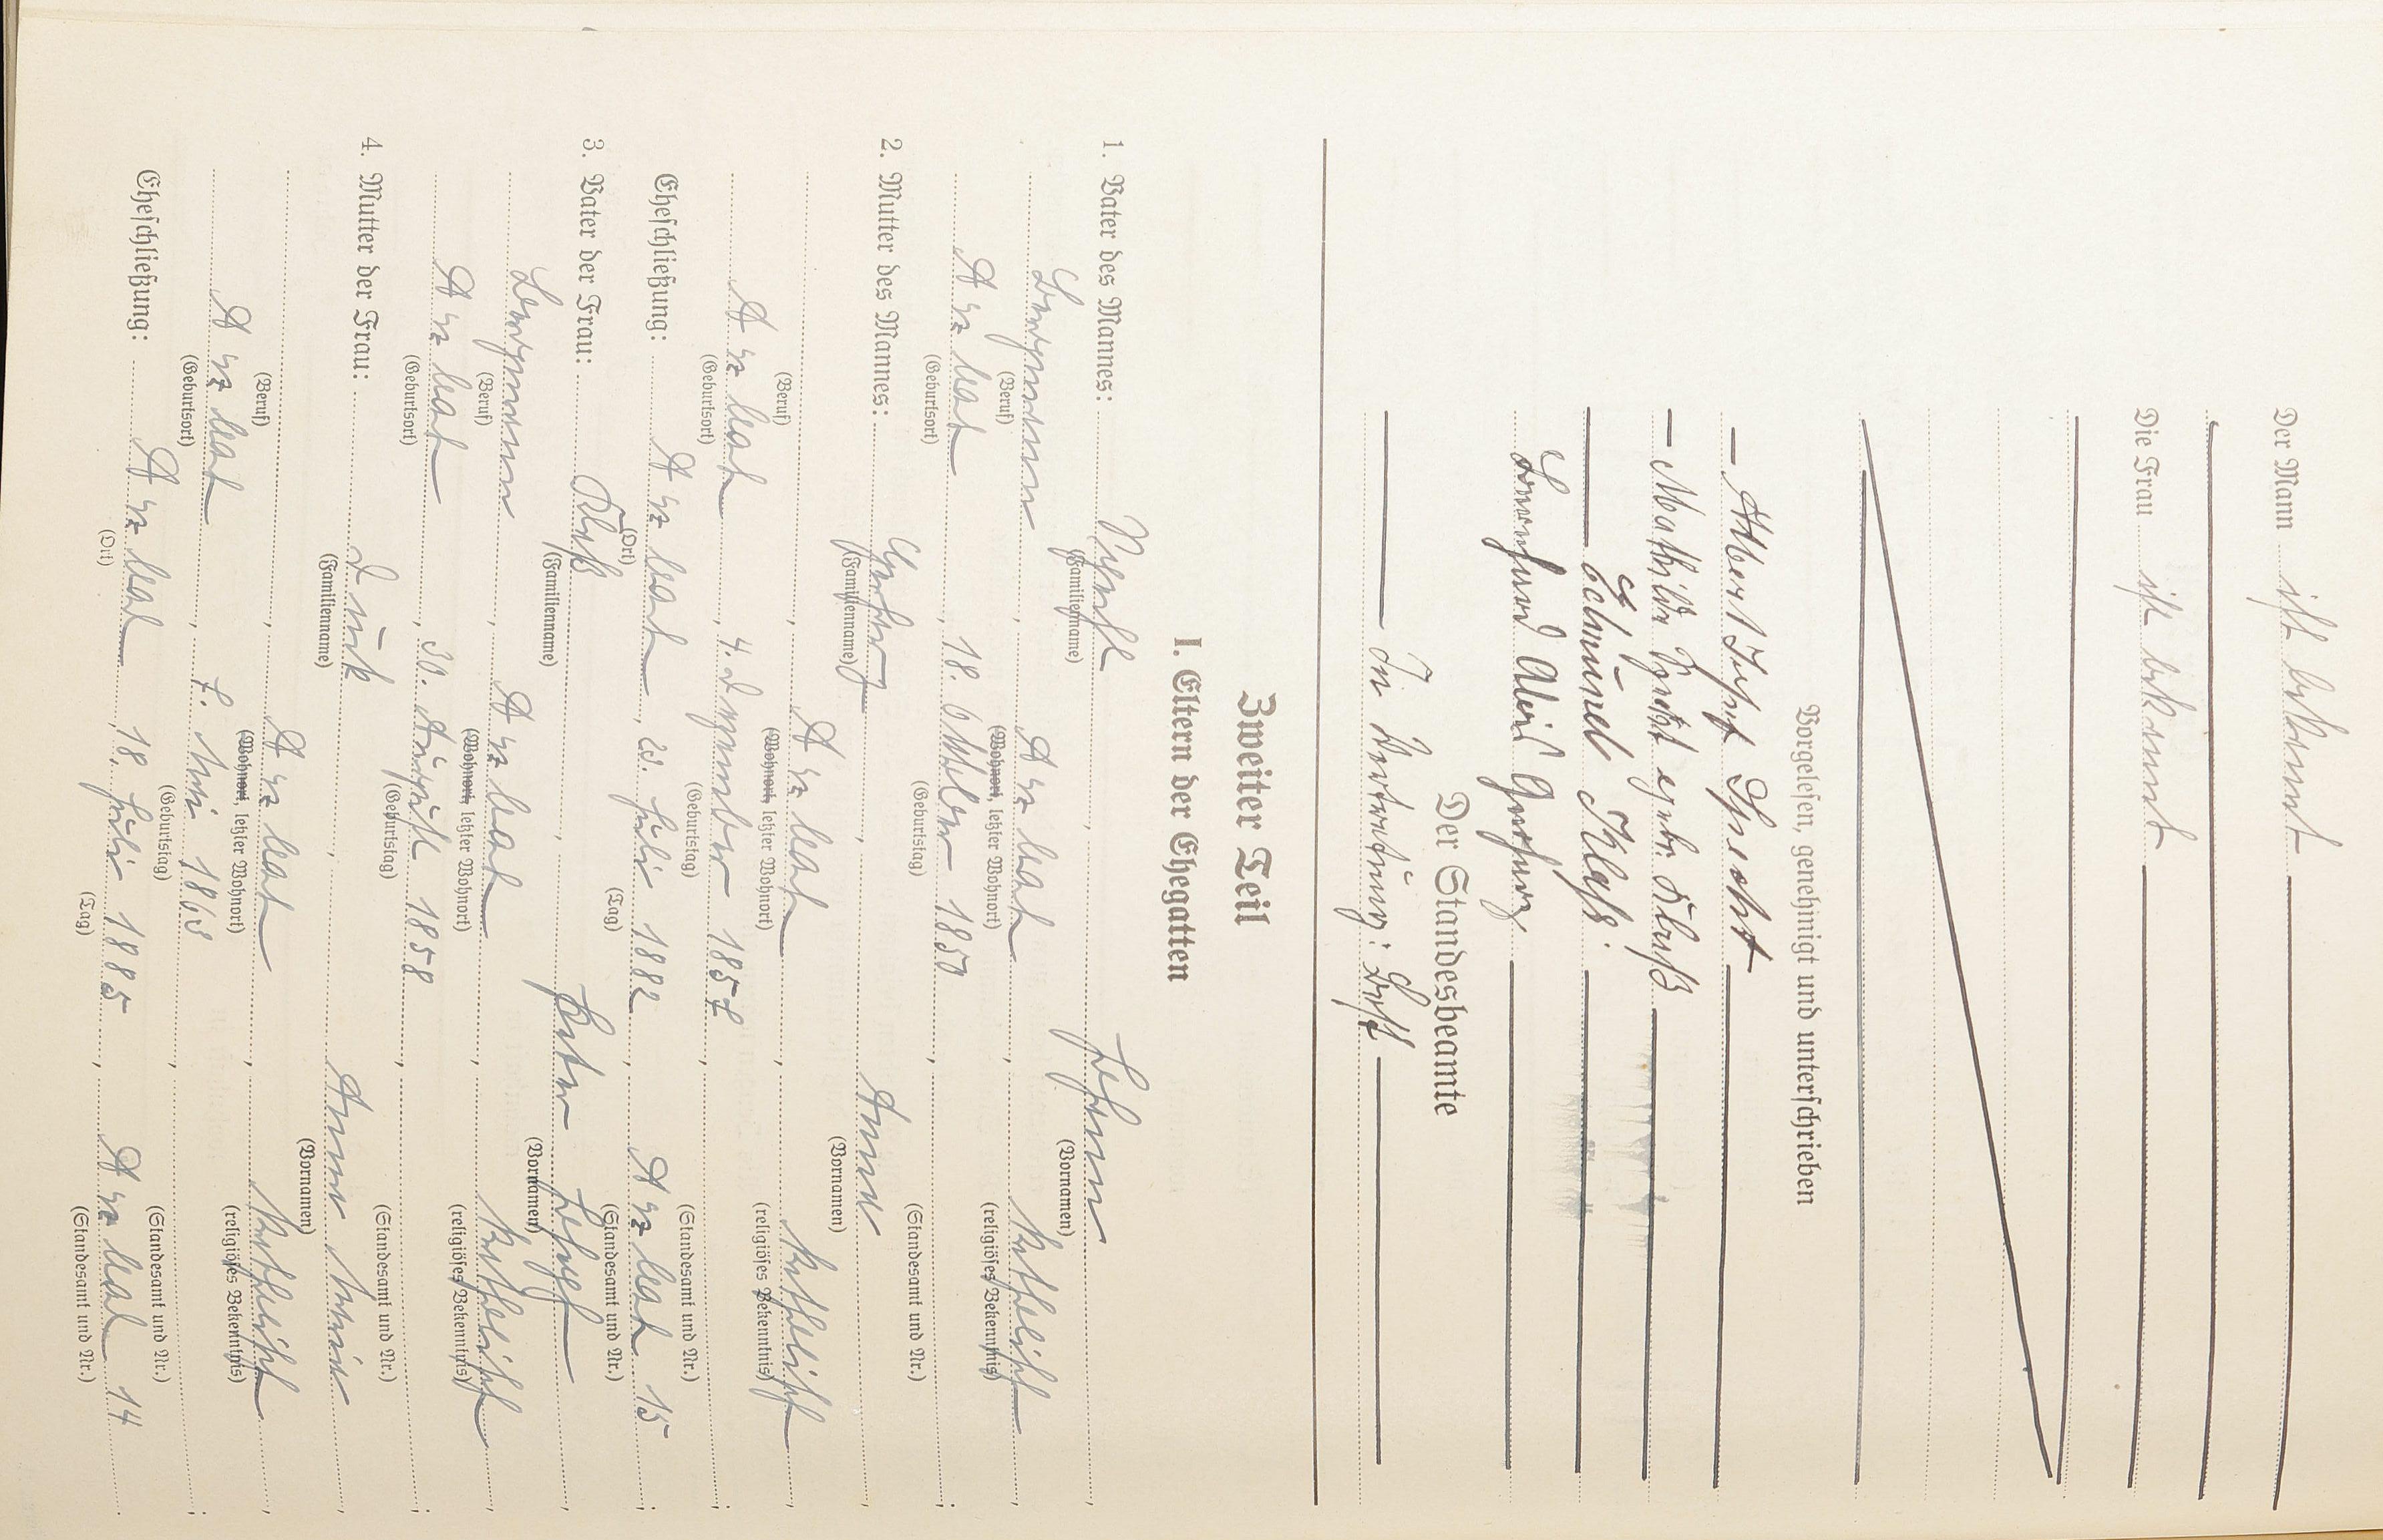 Der Mann ist bekannt
Die Frau ist bekannt
Vorgelesen, genehmigt und unterschrieben
Albert Josef Specht
Mathilde Specht geb. Klaß
Edmund Klaß.
Der Standesbeamte
In Vertretung:
Zweiter Teil
I. Eltern der Ehegatten
1. Vater des Mannes: Specht, Johann
(Familienname) (Vornamen)
Bergmann, Arzbach, katholisch
(Beruf) (Wohnort, letzter Wohnort) (religiöses Bekenntnis)
Arzbach, 18. Oktober 1850
(Geburtsort) (Geburtstag) (Standesamt und Nr.)
2. Mutter des Mannes: Anna
(Familienname) (Vornamen)
Arzbach, katholisch
(Beruf) (Wohnort, letzter Wohnort) (religiöses Bekenntnis)
Arzbach, 4. Dezember 1857
(Geburtsort) (Geburtstag) (Standesamt und Nr.)
Eheschließung: Arzbach, 23. Juli 1882, Arzbach 15
(Ort) (Tag) (Standesamt und Nr.)
3. Vater der Frau: Klaß, Peter Josef
(Familienname) (Vornamen)
Bergmann, Arzbach, katholisch
(Beruf) (Wohnort, letzter Wohnort) (religiöses Bekenntnis)
Arzbach, 30. August 1858
(Geburtsort) (Geburtstag) (Standesamt und Nr.)
4. Mutter der Frau: Dünk, Anna Maria
(Familienname) (Vornamen)
Arzbach, katholisch
(Beruf) (Wohnort, letzter Wohnort) (religiöses Bekenntnis)
Arzbach, 7. Mai 1863
(Geburtsort) (Geburtstag) (Standesamt und Nr.)
Eheschließung: Arzbach, 18. Juli 1885, Arzbach 14
(Ort) (Tag) (Standesamt und Nr.)